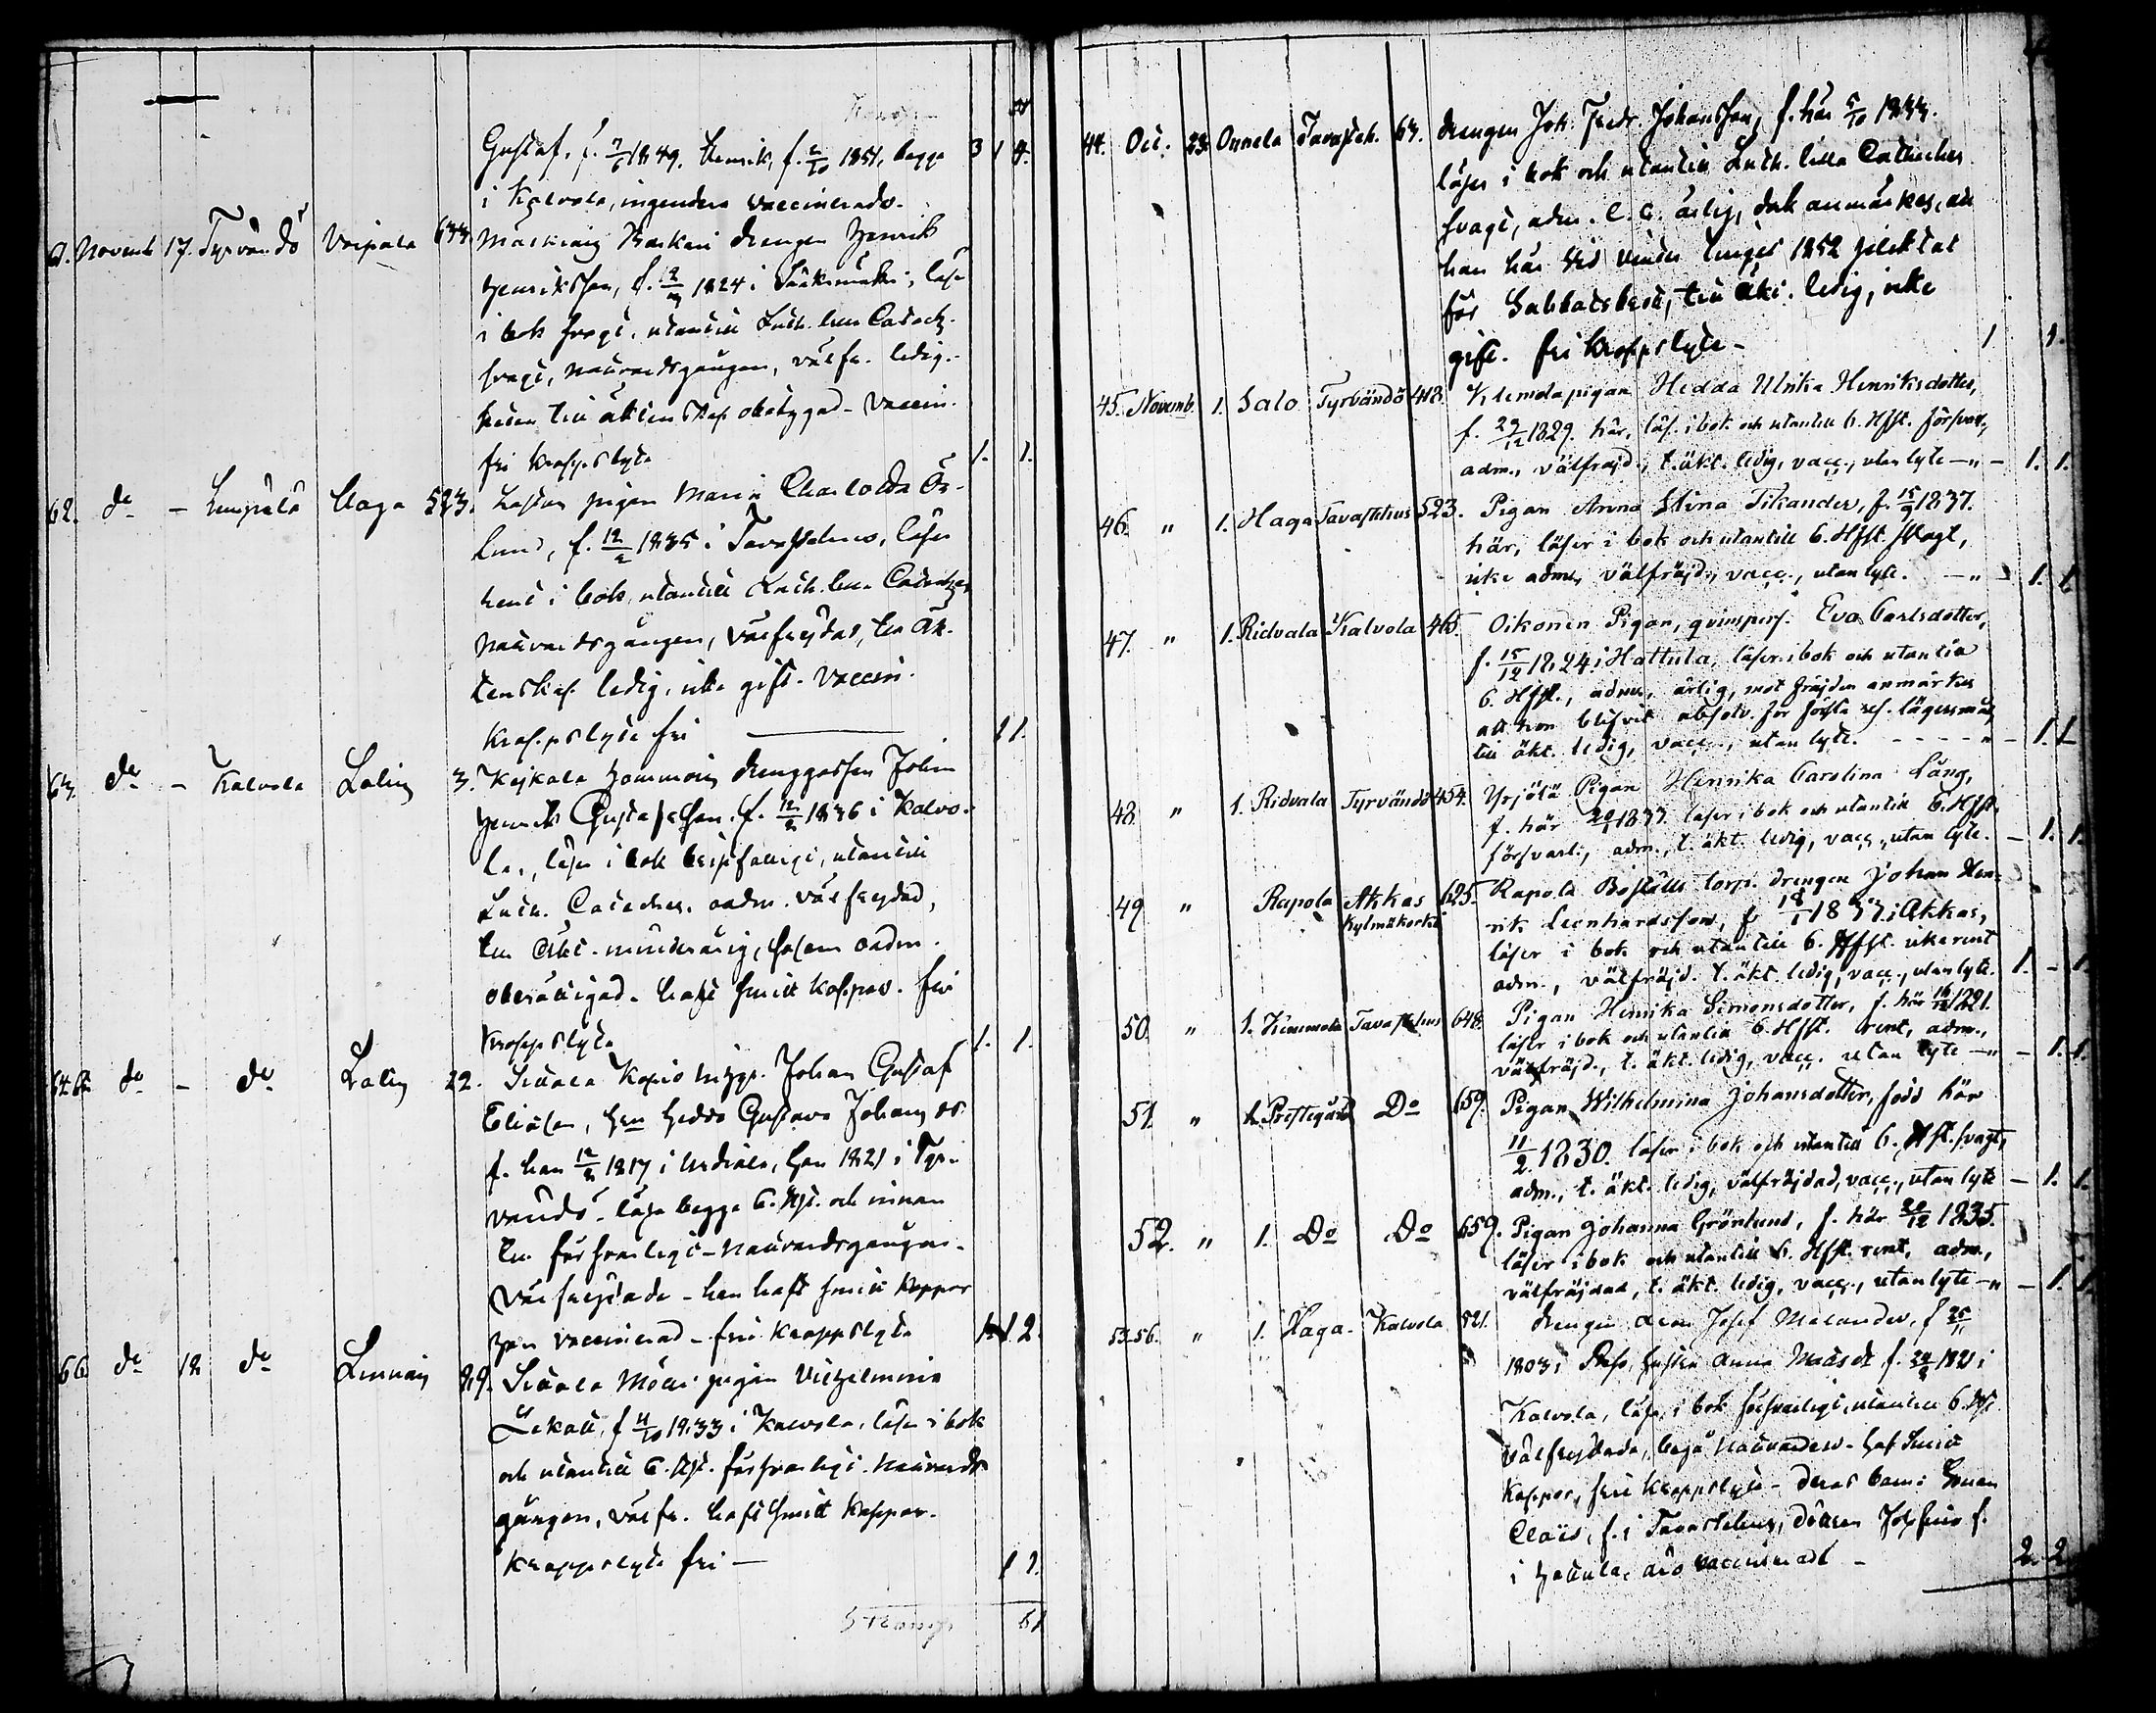 Gustaf, f. 7/6 1849. Henrik, f. 2/10 1851, begge 3 1 4.
i Kalvola, ingendera vaccinerade.
61. Novemb 17. Tyrvändö Voipala 633. drengen Henrik
Henriksson, f. 1824 i Sääksmäki, läser
i bok svagt, utantill Luth. lilla Catech.
svagt, nattvardsgången, välfr. ledig.
till äktenskap obetygad - vaccin.
fri kroppslyte 1. 1.
62. do - Lempälä Haga 523. pigan Maria Charlotta Ös-
lund, f. 12/2 1835 i Tavastehus, läser
rent i bok, utantill Luth. lilla Cateches
nattvardsgången, välfrejdad, till äk-
tenskap ledig, icke gift. vaccin.
kroppslyte fri 1 1.
63. do - Kalvola Lalin 3. drenggossen Johan
Henrik Gustafsson. f. 12/2 1836 i Kalvo-
la, läser i bok, utantill
Luth. Cateches. oadm. välfrejdad,
till äkt. minderårig, oadm.
haft smitt koppor. fri
kroppslyte 1. 1.
64.65. do - do Lalin 22. Johan Gustaf
Eliasson, Hedda Gustava Johans dr
f. han 12/2 1817 i Urdiala, hon 1821 i Tyr-
vändö - läsa begge 6. Hft. och innan
till försvarligt - nattvardsgången.
välfrejdade - han haft smitt koppor
hon vaccinerad - fri kroppslyte 1. 1. 2.
66. do 18 do Linnais 89. pigan Vilhelmina
f. 4/10 1833 i Kalvola, läser i bok
och utantill 6. Hft. försvarligt. nattvards
gången, välfr. haft smitt koppor.
kroppslyte fri — 1 1.
51
44. Oct. 23. Onnela Tavasteh. 63. drengen Joh. Fredr. Johansson, f. här 5/10 1833.
läser i bok och utantill Luth. lilla Catheches
svagt, adm. ärlig, dock anmärkes, att
han här vid vinter tinget 1852 pliktat
för Sabbatsbrott, till äkt. ledig, icke
gift. fri kroppslyte - 1 1.
45. Novemb. 1. Salo Tyrvändö 418. Klemola pigan Hedda Ulrika Henriksdotter,
f. 29/12 1829. här, läs. i bok och utantill 6. Hfst. försvarl.,
adm., välfrejd., t. äkt. ledig, vacc., utan lyte -"- 1. 1.
46. " 1. Haga Tavastehus 523. Pigan Anna Stina Tikander, f. 15/9 1837.
här, läser i bok och utantill 6. Hfst. svagt,
icke adm., välfräjd., vacc., utan lyte. -"- 1. 1.
47. " 1. Ridvala Kalvola 465. Oikonen Pigan, qvinspers. Eva Carlsdotter,
f. 15/12 1824 i Hattula, läser i bok och utantill
6. Hfst., adm., ärlig, mot fräjden anmärkes
att hon blifvit absolv. för första res. lägersmål,
till äkt. ledig, vacc., utan lyte. - - - - " - 1. 1.
48. " 1. Ridvala Tyrvändö 454. Yrjölä Pigan Henrika Carolina Lång,
f. här 20/1 1837. läser i bok och utantill 6. Hfst.
försvarl., adm., t. äkt. ledig, vacc., utan lyte. - 1. 1.
49. " Rapola Akkas 625. Rapola Boställs torp. drengen Johan Hen-
Kylmäkorki
rik Leonhardsson, f. 18/1 1833. i Akkas,
läser i bok och utantill 6. Hfst. icke rent
adm., välfräjd. t. äkt. ledig, vacc., utan lyte. 1. - 1.
50. " 1. Kemmola Tavastehus 648. Pigan Henrika Simonsdotter, f. här 16/12 1821.
läser i bok och utantill 6. Hfst. rent, adm.,
välfräjd., t. äkt. ledig, vacc. utan lyte -"- 1. 1.
51. " 1. Prestegård Do 659. Pigan Wilhelmina Johansdotter, född här
11/2. 1830. läser i bok och utantill 6. Hfst. svagt,
adm., t. äkt. ledig, välfräjdad, vacc., utan lyte - 1. 1.
52. " 1. Do Do 659. Pigan Johanna Grönlund, f. här 20/12 1835.
läser i bok och utantill 6. Hfst. rent, adm.,
välfräjdad, t. äkt. ledig, vacc., utan lyte -"- 1. 1.
53-56. " 1. Haga. Kalvola 521. drengen Josef Melander, f. 25/11
1803 i hustru Anna f. 24/2 1821 i
Kalvola, läsa i bok försvarligt, utantill 6. Hft
välfrejdade, begå nattvarden - haft smitt
koppor, fri kroppslyte - deras barn: Sonen
f. i Tavastehus, dottren Josefina f.
i Hattula, äro vaccinerade - 2. 2.